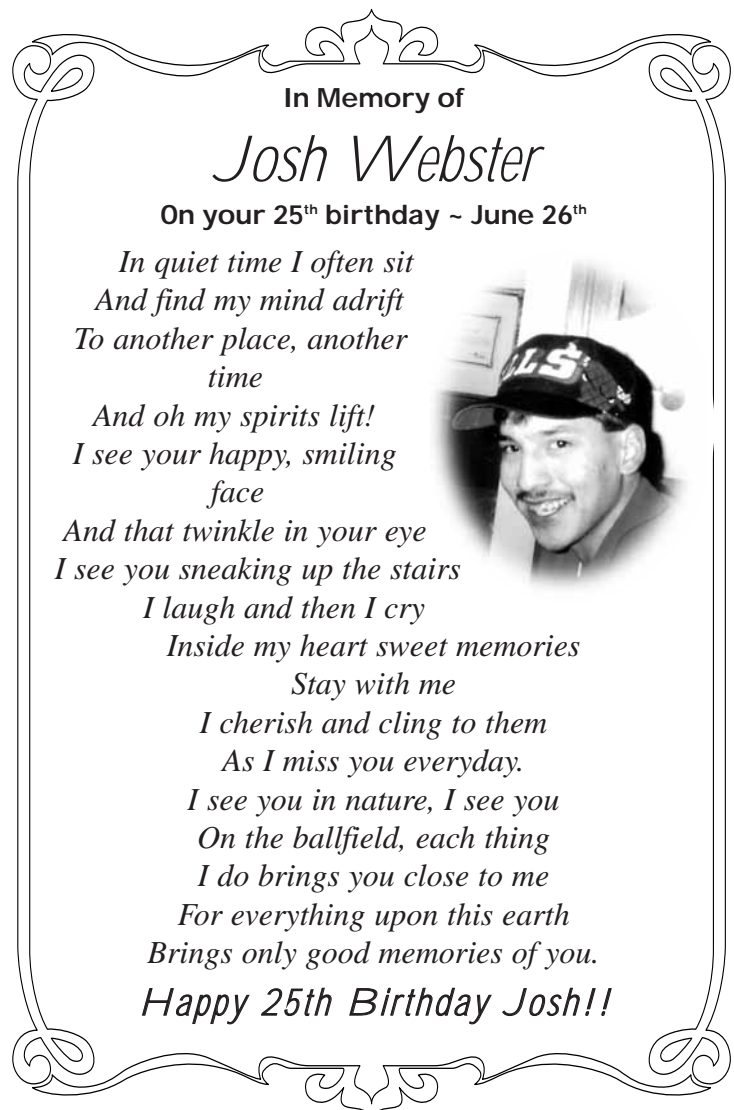 In Memory of
Josh Webster
On your 25th birthday ~ June 26th
In quiet time I often sit
And find my mind adrift
To another place, another
time
And oh my spirits lift!
I see your happy, smiling
face
And that twinkle in your eye
I see you sneaking up the stairs
I laugh and then I cry
Inside my heart sweet memories
Stay with me
I cherish and cling to them
As I miss you everyday.
I see you in nature, I see you
On the ballfield, each thing
I do brings you close to me
For everything upon this earth
Brings only good memories of you.
Happy 25th Birthday Josh!!